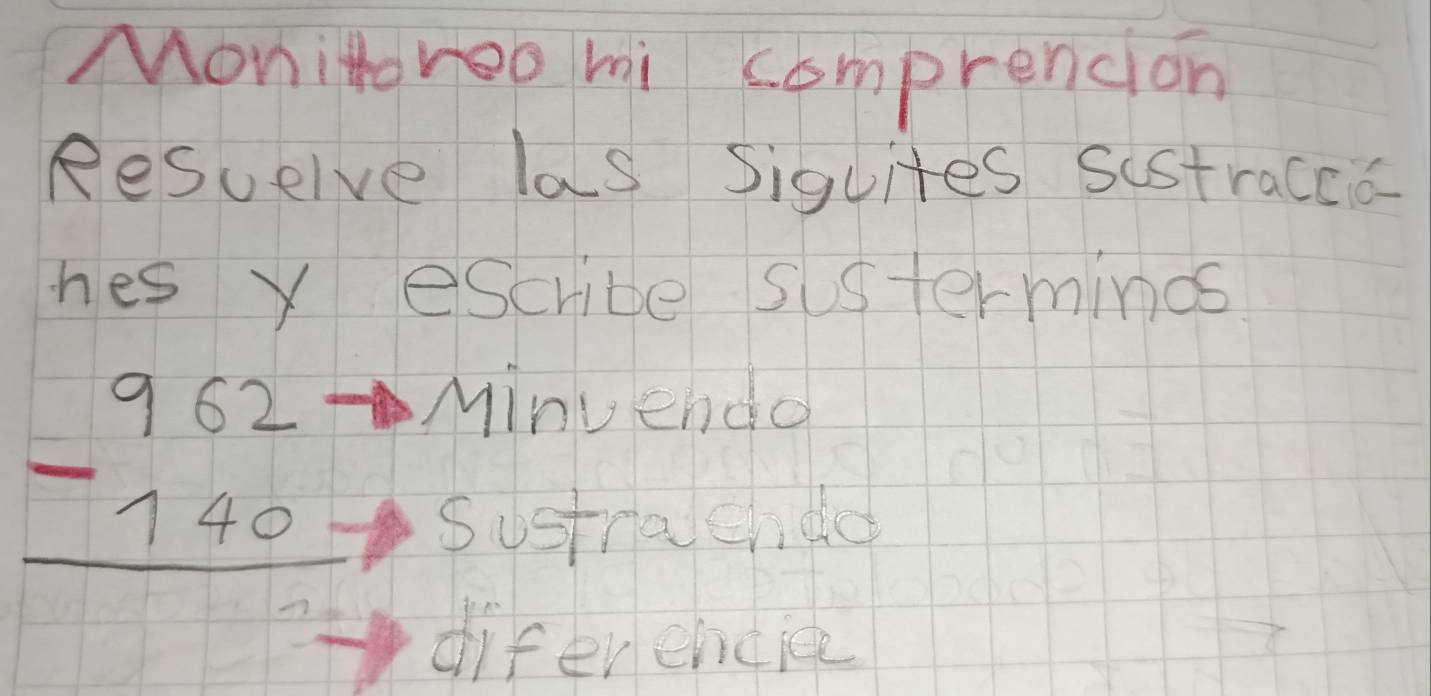 Monittoreo mi comprención
Resuelve las siguites sustracció-
nes y escribe sus terminos.
962 → Minuendo
-
140 → Sustraendo
→ diferencia